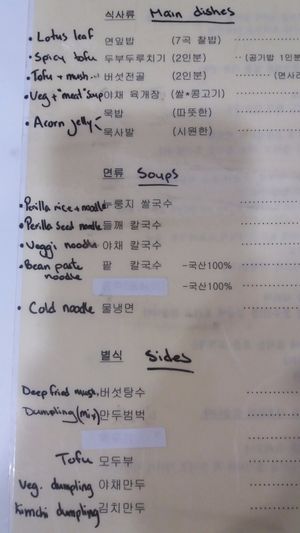 식사류 Main dishes
• Lotus leaf 연잎밥 (7곡 찰밥)
• Spicy tofu 두부두루치기 (2인분) (공기밥 1인분
• Tofu + mush.. 버섯전골 (2인분) (면사리
• Veg + "meat" sup 야채 육개장 (쌀*콩고기)
• Acorn jelly 묵밥 (따뜻한)
묵사발 (시원한)
면류 Soups
• Perilla rice + noodle 누룽지 쌀국수
• Perilla Seed noodle 들깨 칼국수
• Veggi noodle 야채 칼국수
• Bean paste noodle 팥 칼국수 -국산100%
-국산100%
• Cold noodle 물냉면
별식 Sides
Deep fried mush. 버섯탕수
Dumpling (mix) 만두범벅
Tofu 모두부
Veg. dumpling 야채만두
Kimchi dumpling 김치만두